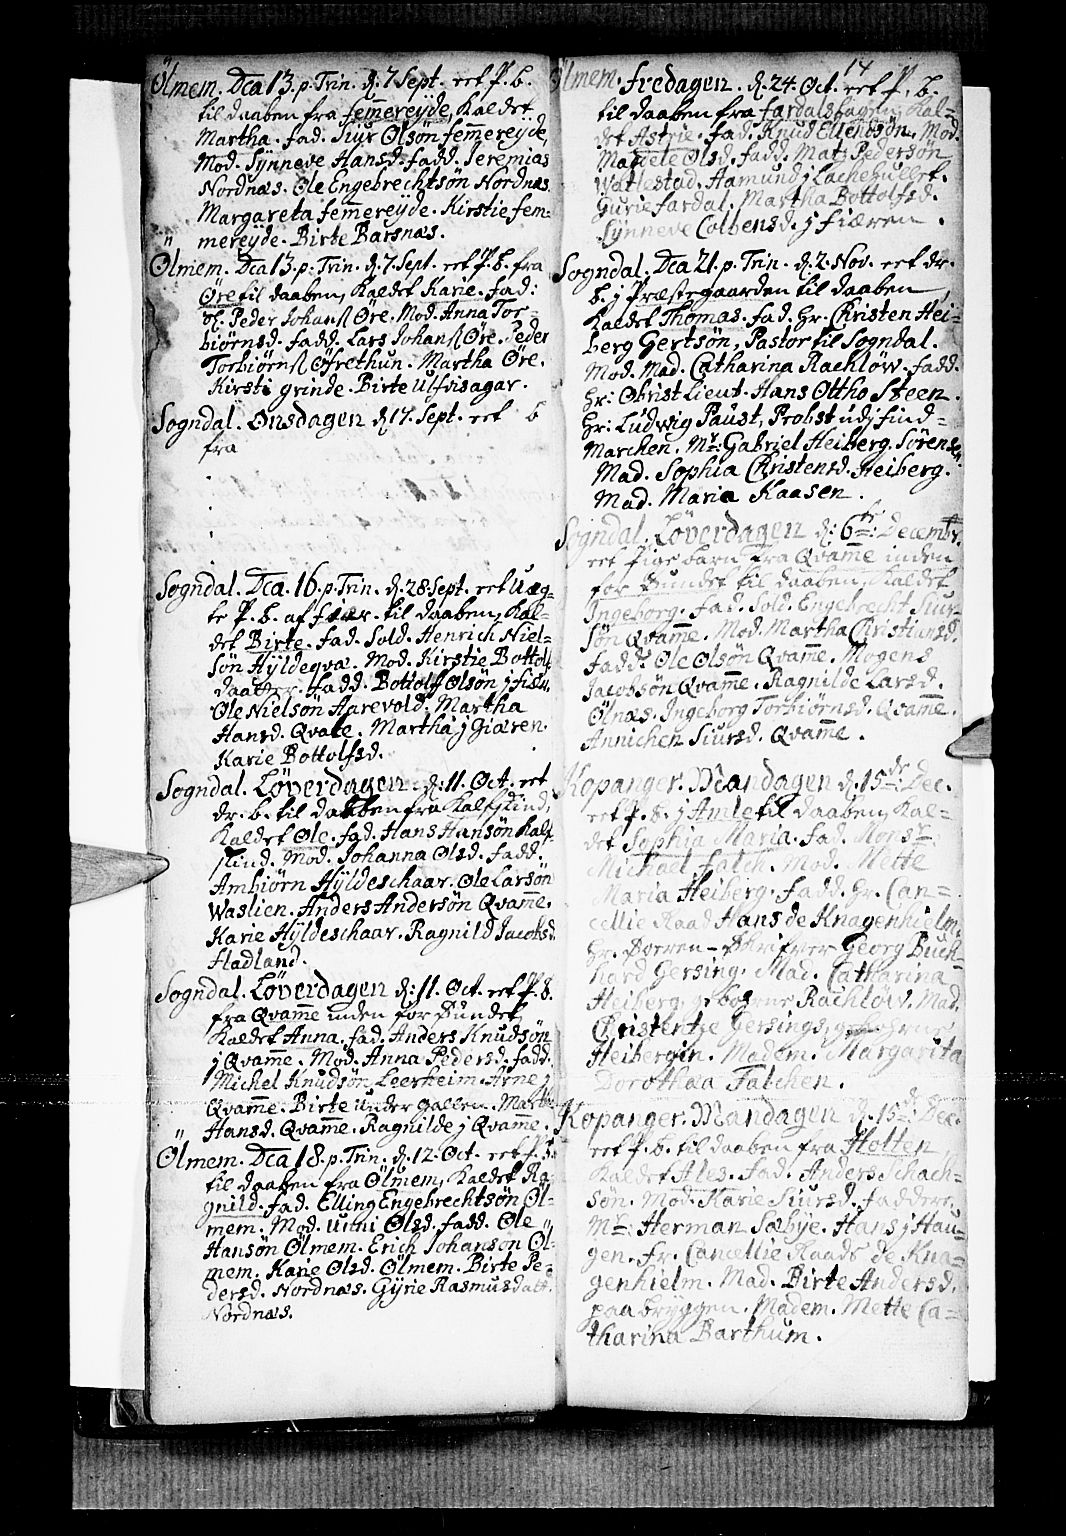 Ölmem. Dca 13. p. Trin. d. 7 Sept. eet P. b.
til daaben fra femmereÿde, Kaldet
Martha. fad. Siur Olsøn femmereÿde,
Mod. Sÿnneve Hansd. fadd. Jeremias
Nordnæs. Ole Engebrechtsøn Nordnæs.
Margareta femmereÿde. Kirstie fem-
mereÿde. Birte Barsnæs.
Ölmem. Dca 13. p. Trin. d. 7. Sept. eet P. b. fra
Øre til daaben, Kaldet Karie. fad:
Peder Johans. Øre. Mod. Anna Tor-
biørnsd. fadd. Lars Johans. Øre. Peder
Torbiørns. Øfrethun. Martha Øre.
Kirsti grinde. Birte Ulfvisagar.
Sogndal. Onsdagen d. 17. Sept. eet b
fra
Sogndal. Dca. 16. p. Trin. d. 28. Sept. eet Uæg-
te P. b. af fiær. til daaben, Kal-
det Birte. fad. Sold. Henrich Niel-
søn Hÿldeqva. Mod. Kirstie Bottolf
daatter. fadd. Bottolf Olsøn j fiær.
Ole Nielsøn Aarevold. Martha
Hansd. Qvale. Martha j Giæren.
Karie Bottolfsd.
Sogndal. Löverdagen. d. 11. Oct. eet
dr. b. til daaben fra Kalfskind,
Kaldet Ole. fad. Hans Hansøn Kalf
skind. Mod. Johanna Olsd. fadd.
Ambiørn Hÿldeschaar. Ole Larsøn
Waslien. Anders Andersøn Qvamme.
Karie Hÿldeschaar. Ragnild Jacobsd.
Hadland.
Sogndal. Löverdagen d. 11. Oct. eet P. B.
fra Qvamme inden for Sundet,
Kaldet Anna. fad. Anders Knudsøn
j Qvamme. Mod. Anna Pedersd. fadd.
Michel Knudsøn Leerheim. Arne j
Qvamme. Birte under gallen. Martha
Hansd. Qvamme. Ragnilde j Qvamme.
Ölmem. Dca 18. p. Trin. d. 12. Oct. eet P. b.
til daaben fra Ölmem, Kaldet Ra-
gnild. fad. Elling Engebrechtsøn Öl-
mem. Mod. Olsd. fadd. Ole
Hansøn Ölmem. Erich Johansøn Öl-
mem. Karie Olsd. Ölmem. Birte Pe-
dersd. Nordnæs. Gÿrie Rasmusdatt.
Nordnæs.
14
Ölmem. fredagen. d. 24. Oct. eet P. b.
til daaben fra fardalsbagen, Kal-
det Astrie. fad. Knud Ellendsøn. Mod.
Madele Olsd. fadd. Mats Pedersøn
Watlestad. Aamund j
Gurie fardal. Martha Bottolfsd.
Sÿnneve Colbensd. j fiæren.
Sogndal. Dca 21. p. Trin. d. 2. Nov. eet dr.
b. j Præstegaarden til daaben
Kaldet Thomas. fad. Hr. Christen Hei-
berg Gertsøn, Pastor til Sogndal.
Mod. Mad. Catharina Rachløw. fadd.
Hr: Obrist Lieut. Hans Ottho Steen.
Hr: Ludwig Paust, Probst udj find-
marchen. Mr: Gabriel Heiberg Sørens.
Mad. Sophia Christensd. Heiberg.
Mad. Maria Kaasen.
Sogndal. Löverdagen d: 6te: Decembr.
eet Pige barn fra Qvamme inden
for Sundet til daaben, Kaldet
Ingeborg. fad. Sold. Engebrecht Siur-
søn Qvamme. Mod. Martha Christiansd.
fadd. Ole Olsøn Qvamme. Mogens
Jacobsøn Qvamme. Ragnilde Larsd.
Ölnæs. Ingeborg Torbiørnsd. Qvamme.
Annichen Siursd. Qvamme.
Kopanger. Mandagen d. 15de Dec.
eet P. B. j Amle til daaben, Kal-
det Sophia Maria. fad. Monsr
Michael Falch. Mod. Mette
Maria Heiberg. fadd. Hr. Can-
cellie Raad Hans de Knagenhielm.
Hr. Sorren-Skrifver Georg Buch-
hard Gersing. Mad. Catharina
Heiberg, gebohrne Rachløw. Mad.
Christentze Gersings, gebohrne
Heibergin. Madem. Margarita
Dorothaa Falchen.
Kopanger. Mandagen d. 15de Dec.
eet P. b. til daaben fra Holten,
Kaldet Ales. fad. Anders Schach-
søn. Mod. Karie Siursd. faddere.
Mr: Herman Sæbÿe. Hans j Hau-
gen. Fr. Cancellie Raads de Kna-
genhielm. Mad. Birte Andersd.
paa bryggen. Madem. Mette Ca-
tharina Barthum.